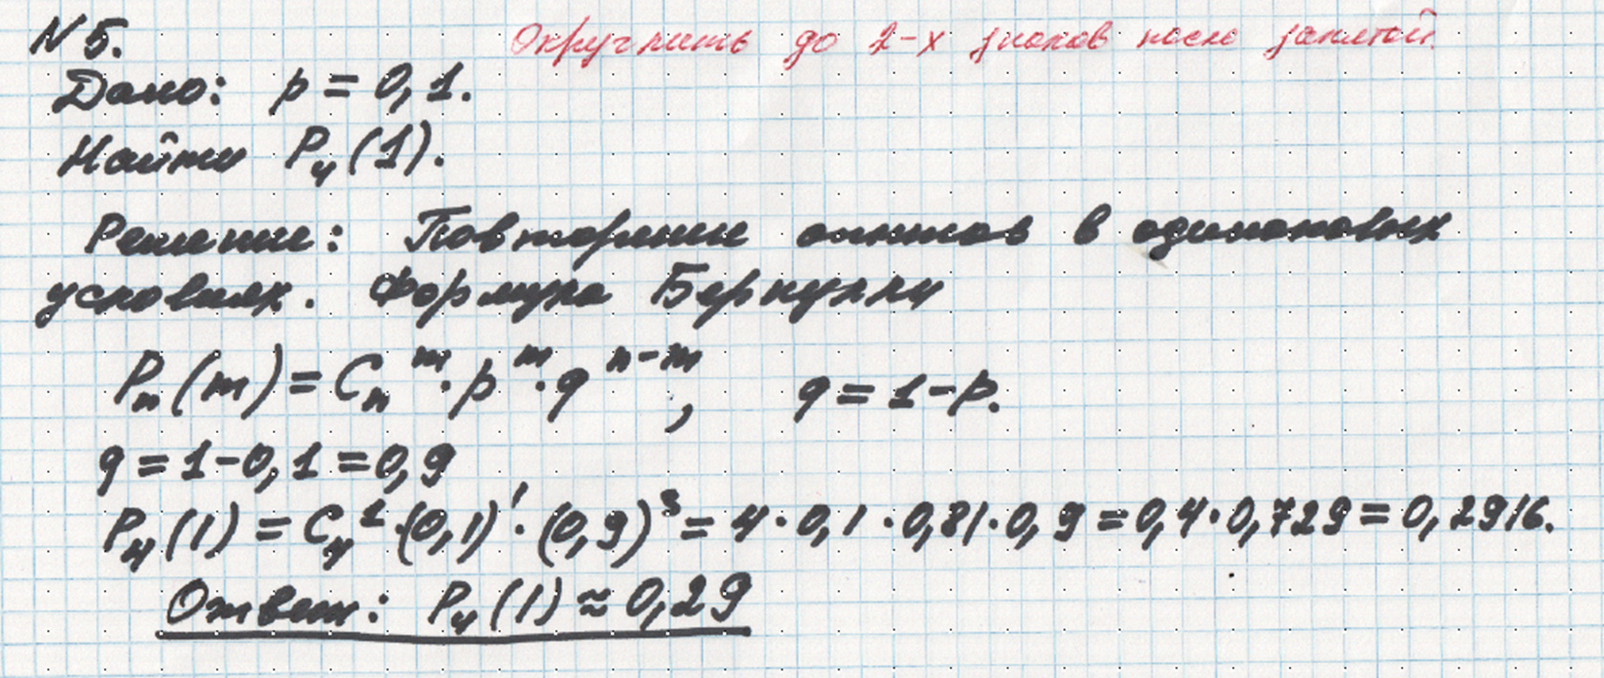 N 5. Округлить до 2-х знаков после запятой.
Дано: p = 0,1.
Найти P₄(1).
Решение: Повторение опытов в одинаковых
условиях. Формула Бернулли
Pₙ(m) = Cₙᵐ · pᵐ · qⁿ⁻ᵐ, q = 1 - p.
q = 1 - 0,1 = 0,9
P₄(1) = C₄¹ · (0,1)¹ · (0,9)³ = 4 · 0,1 · 0,81 · 0,9 = 0,4 · 0,729 = 0,2916.
Ответ: P₄(1) ≈ 0,29